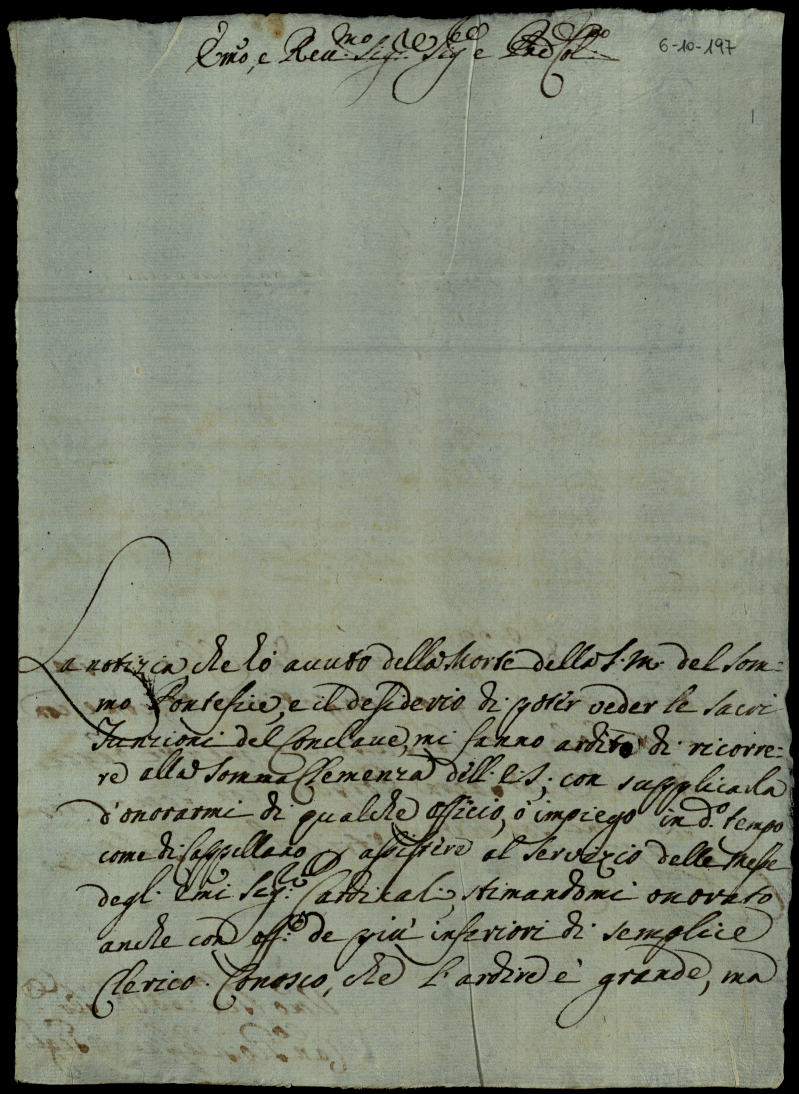 Emo, e Reu.mo Sig.re Sig.e e Pnē Col.mo
6-10-197
1
La notizia che hò auuto della Morte della S. M. del Som-
mo Pontefice, e il desiderio di potér ueder le Sacri
Funzioni del Conclaue, mi fanno ardito di ricorre-
re alla Somma Clemenza dell' E. S., con supplicarla
d'onorarmi di qualche officio, ò impiego in d.o tempo
come di Cappellano p assistere al Servizio delle Messe
degl' Emi Sig.ri Cardinali, stimandomi onorato
anche con off.o de più inferiori di Semplice
Clerico. Conosco, che l'ardire è grande, ma